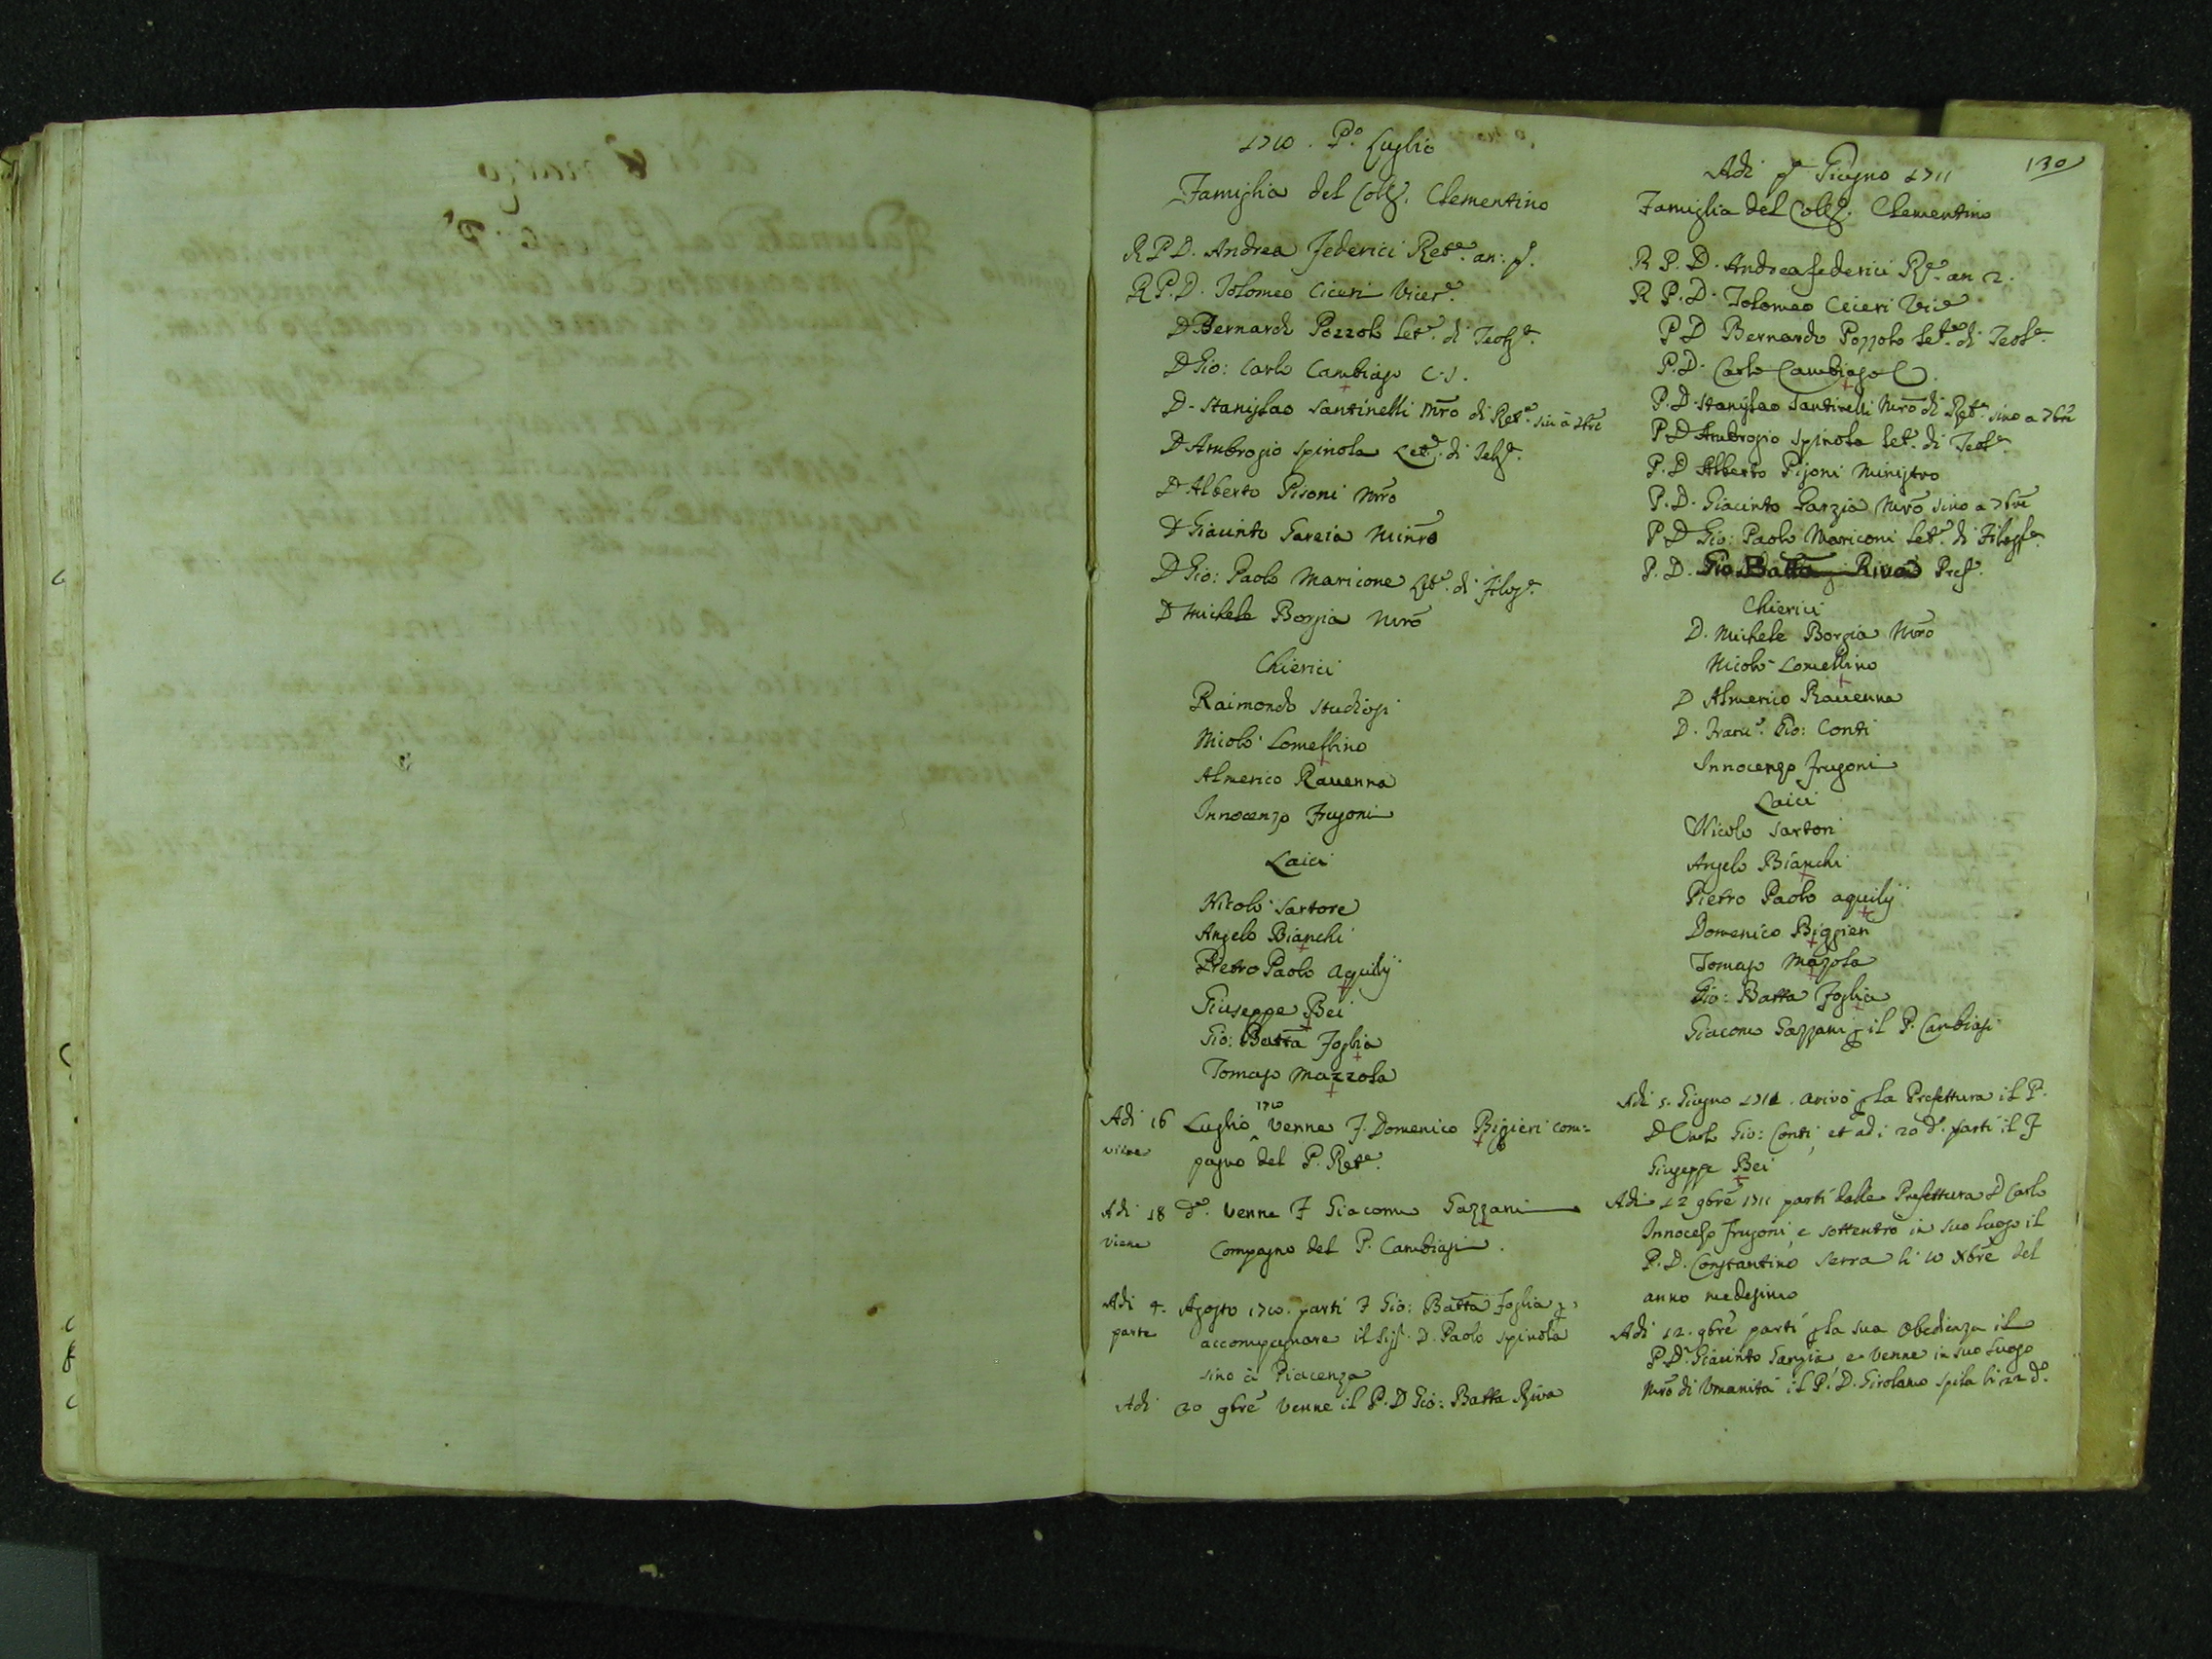 1710. P.o Luglio
Famiglia del Coll.o Clementino
R P D. Andrea Federici Ret.e an: p.o
R P. D. Tolomeo Ciceri Vicer.e
D Bernardo Pozzolo Let.e di Teolg.a
D Gio: Carlo Cambiago C. S.
D. Stanislao Santinelli Mro di Ret.a sin à 7bre
D Ambrogio Spinola Let.e di Telg.a
D Alberto Pisoni Mro
D Giacinto Garcia Minro
D Gio: Paolo Maricone Let.e di Filos.a
D Michele Borgia Mro
Chierici
Raimondo Studiosi
Nicolò Lomellino
Almerico Rauenna
Innocenzo Frugoni
Laici
Nicolò Sartore
Angelo Bianchi
Pietro Paolo Aquilij
Giuseppe Bei
Gio: Batta Foglia
Tomaso Mazzola
Adi 16 Luglio 1710 venne F. Domenico Bigieri com=
viene pagno del P. Ret.e
Adi 18 d.o venne F Giacomo Gazzani
viene Compagno del P. Cambiasi.
Adi 4. Agosto 1710. partì F Gio: Batta Foglia p
parte accompagnare il Sig.r D. Paolo Spinola
sino à Piacenza
Adi 20 9bre venne il P. D Gio: Batta Riva
130
Adi p.o Giugno 1711
Famiglia del Coll.o Clementino
R P. D. Andrea Federici R.e an 2.
R P. D. Tolomeo Ciceri Vic.e
P D Bernardo Pozzolo Let.e di Teol.a
P. D. Carlo Cambiago C
P. D. Stanislao Santinelli Mro di Ret.a sino a 7bre
P D Ambrogio Spinola Let.e di Teol.a
P. D Alberto Pisoni Ministro
P. D. Giacinto Garzia Mro sino a 7bre
P D Gio: Paolo Mariconi Let.e di Filosf.a
P. D. Gio Batta Riva Pref.o
Chierici
D. Michele Borgia Mro
Nicolò Lomellino
D Almerico Rauenna
D. Gio: Conti
Innocenzo Frugoni
Laici
Nicolo Sartori
Angelo Bianchi
Pietro Paolo aquilij
Domenico Biggieri
Tomaso Mazola
Gio: Batta Foglia
Giacomo Gazzani p il P. Cambiasi
Adi 5. Giugno 1711. arivò p la Prefettura il P.
D Carlo Gio: Conti, et adi 20 d.o partì il F
Giuseppe Bei
Adi 12 9bre 1711 partì dalla Prefettura D Carlo
Innocezo Frugoni, e sottentrò in suo luogo il
P. D. Constantino Serra li 10 Xbre del
anno medesimo
Adi 12. 9bre partì p la sua Obedienza il
P D. Giacinto Garzia, e venne in suo luogo
Mro di Umanità il P. D. Girolamo Spila li 22 d.o